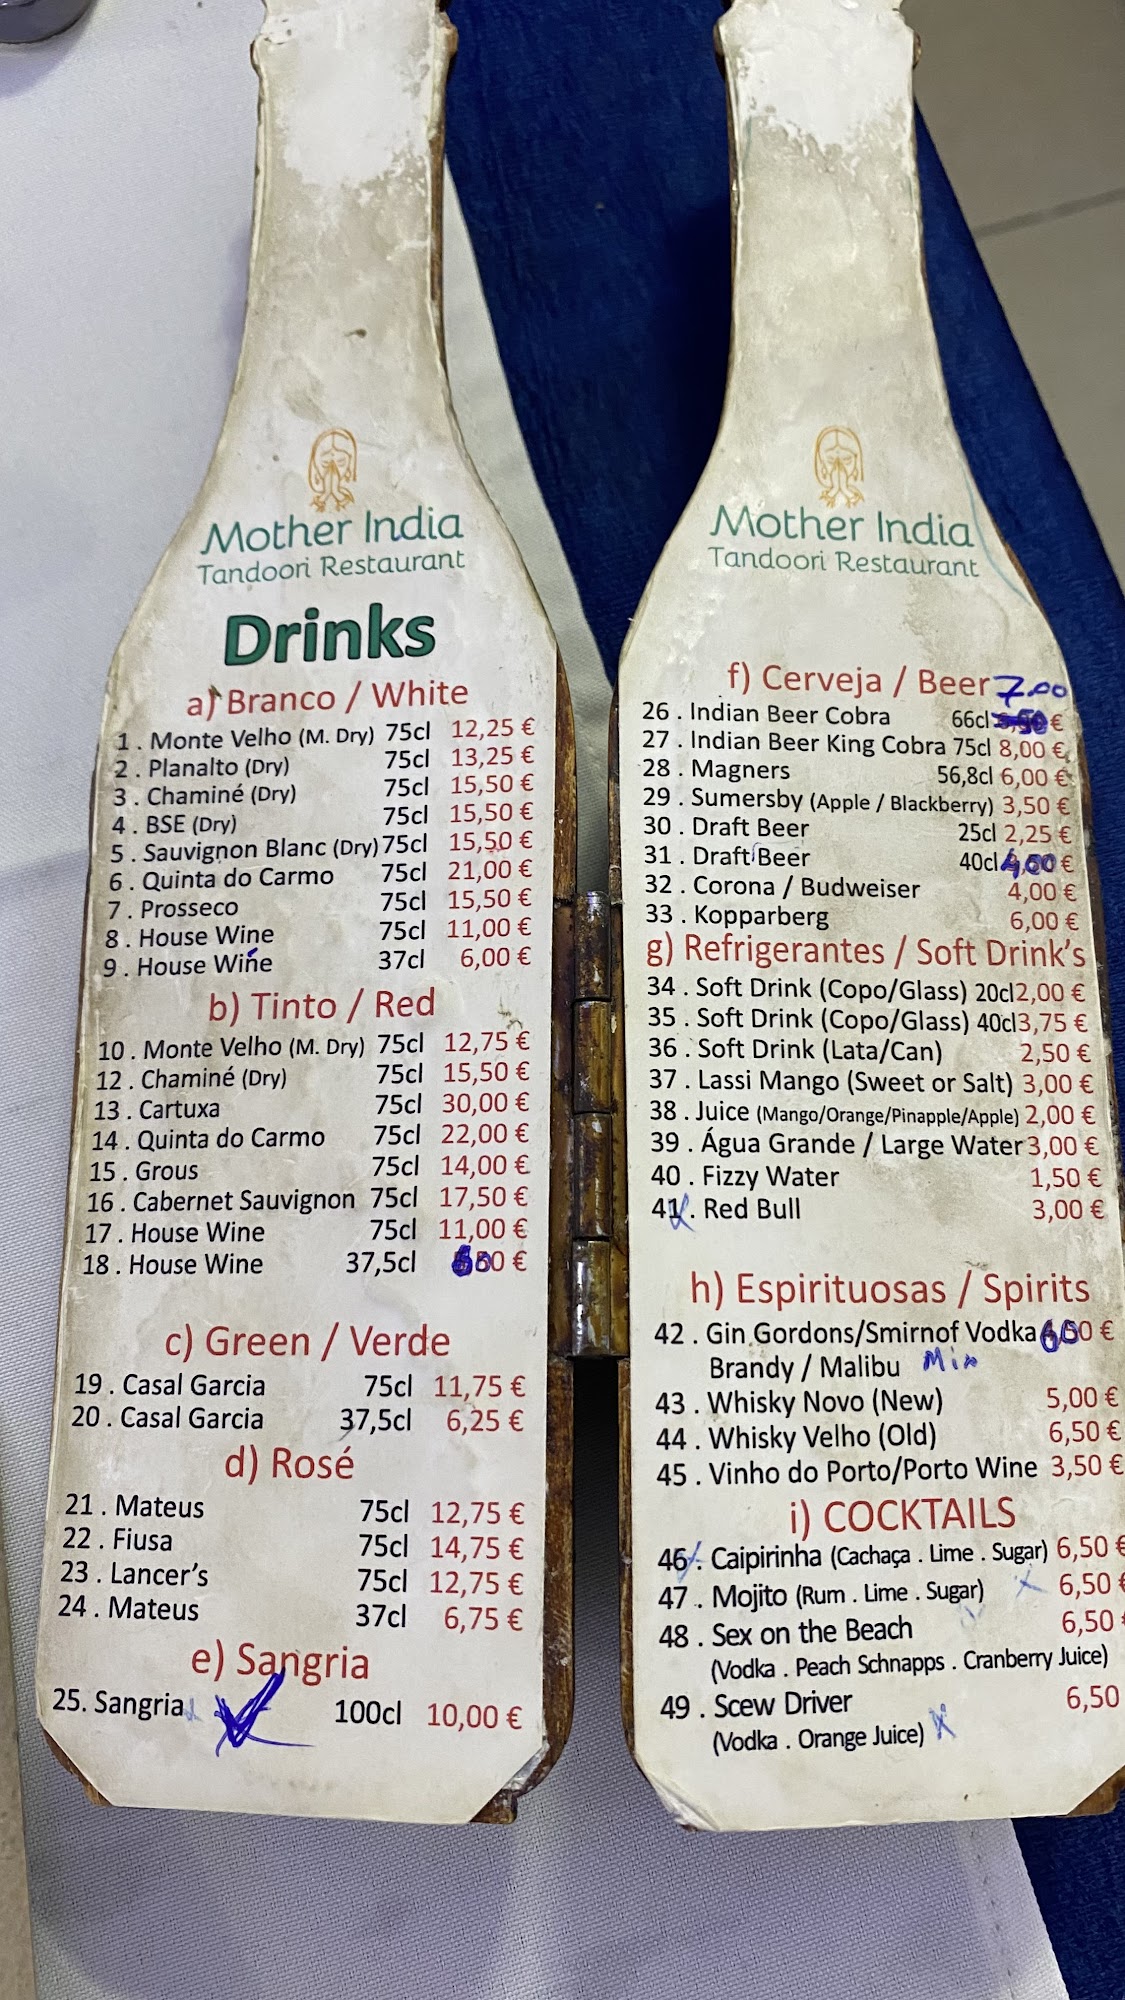 Mother India
Tandoori Restaurant
Drinks
a) Branco / White
1 . Monte Velho (M. Dry) 75cl 12,25 €
2 . Planalto (Dry) 75cl 13,25 €
3 . Chaminé (Dry) 75cl 15,50 €
4 . BSE (Dry) 75cl 15,50 €
5 . Sauvignon Blanc (Dry) 75cl 15,50 €
6 . Quinta do Carmo 75cl 21,00 €
7 . Prosseco 75cl 15,50 €
8 . House Wine 75cl 11,00 €
9 . House Wine 37cl 6,00 €
b) Tinto / Red
10 . Monte Velho (M. Dry) 75cl 12,75 €
12 . Chaminé (Dry) 75cl 15,50 €
13 . Cartuxa 75cl 30,00 €
14 . Quinta do Carmo 75cl 22,00 €
15 . Grous 75cl 14,00 €
16 . Cabernet Sauvignon 75cl 17,50 €
17 . House Wine 75cl 11,00 €
18 . House Wine 37,5cl €
c) Green / Verde
19 . Casal Garcia 75cl 11,75 €
20 . Casal Garcia 37,5cl 6,25 €
d) Rosé
21 . Mateus 75cl 12,75 €
22 . Fiusa 75cl 14,75 €
23 . Lancer's 75cl 12,75 €
24 . Mateus 37cl 6,75 €
e) Sangria
25. Sangria 100cl 10,00 €
Mother India
Tandoori Restaurant
f) Cerveja / Beer 7.00
26 . Indian Beer Cobra 66cl €
27 . Indian Beer King Cobra 75cl 8,00 €
28 . Magners 56,8cl 6,00 €
29 . Sumersby (Apple / Blackberry) 3,50 €
30 . Draft Beer 25cl 2,25 €
31 . Draft Beer 40cl 4,00 €
32 . Corona / Budweiser 4,00 €
33 . Kopparberg 6,00 €
g) Refrigerantes / Soft Drink's
34 . Soft Drink (Copo/Glass) 20cl 2,00 €
35 . Soft Drink (Copo/Glass) 40cl 3,75 €
36 . Soft Drink (Lata/Can) 2,50 €
37 . Lassi Mango (Sweet or Salt) 3,00 €
38 . Juice (Mango/Orange/Pinapple/Apple) 2,00 €
39 . Água Grande / Large Water 3,00 €
40 . Fizzy Water 1,50 €
41 . Red Bull 3,00 €
h) Espirituosas / Spirits
42 . Gin Gordons/Smirnof Vodka €
Brandy / Malibu Mix
43 . Whisky Novo (New) 5,00 €
44 . Whisky Velho (Old) 6,50 €
45 . Vinho do Porto/Porto Wine 3,50 €
i) COCKTAILS
46 . Caipirinha (Cachaça . Lime . Sugar) 6,50 €
47 . Mojito (Rum . Lime . Sugar) 6,50 €
48 . Sex on the Beach 6,50 €
(Vodka . Peach Schnapps . Cranberry Juice)
49 . Scew Driver 6,50
(Vodka . Orange Juice)